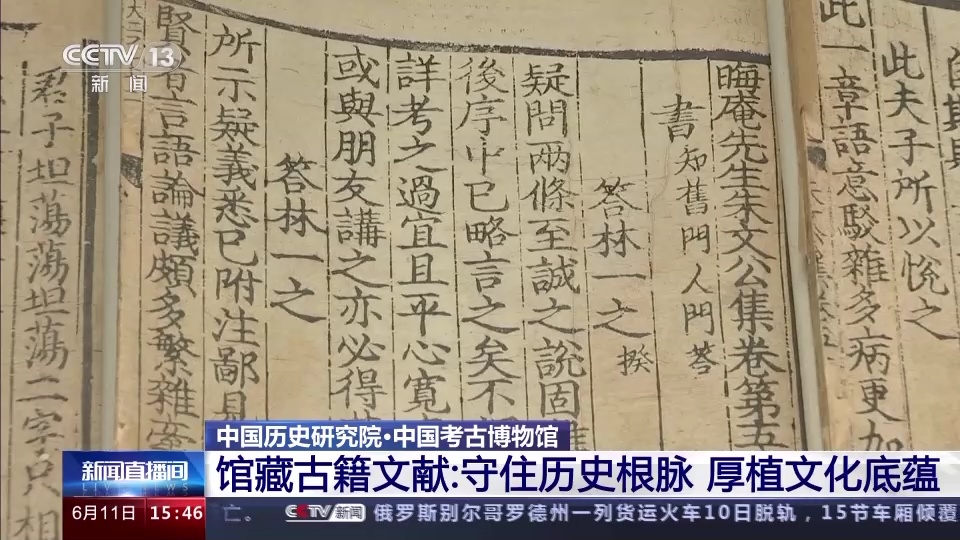 CCTV 13
新闻
此一章語意駁雜多病更加
此夫子所以悅之
晦庵先生朱文公集卷第五
書 知舊門人門荅
荅林一之 揆
疑問兩條至誠之說固
後序中已略言之矣不
詳考之過宜且平心寬
或與朋友講之亦必得
荅林一之
所示疑義悉已附注鄙見
賢者言語論議頗多繁雜
君子坦蕩蕩坦蕩二字只相
中国历史研究院·中国考古博物馆
新闻直播间
馆藏古籍文献:守住历史根脉 厚植文化底蕴
6月11日 15:46
亡。 CCTV新闻 俄罗斯别尔哥罗德州一列货运火车10日脱轨，15节车厢倾覆